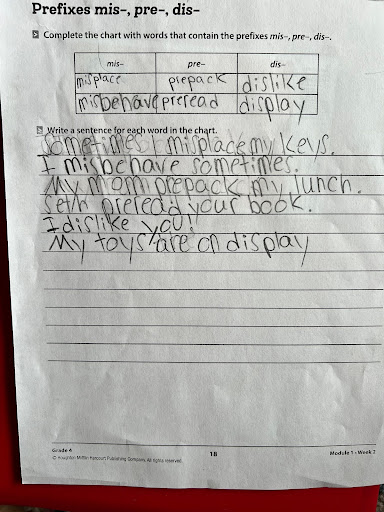 Prefixes mis–, pre–, dis–
Complete the chart with words that contain the prefixes mis–, pre–, dis–.
mis– pre– dis–
misplace prepack dislike
misbehave preread display
Write a sentence for each word in the chart.
Sometimes I misplace my keys.
I misbehave sometimes.
My mom prepack my lunch.
preread your book.
I dislike you!
My toys are on display
Grade 4
© Houghton Mifflin Harcourt Publishing Company. All rights reserved.
18
Module 1 • Week 2